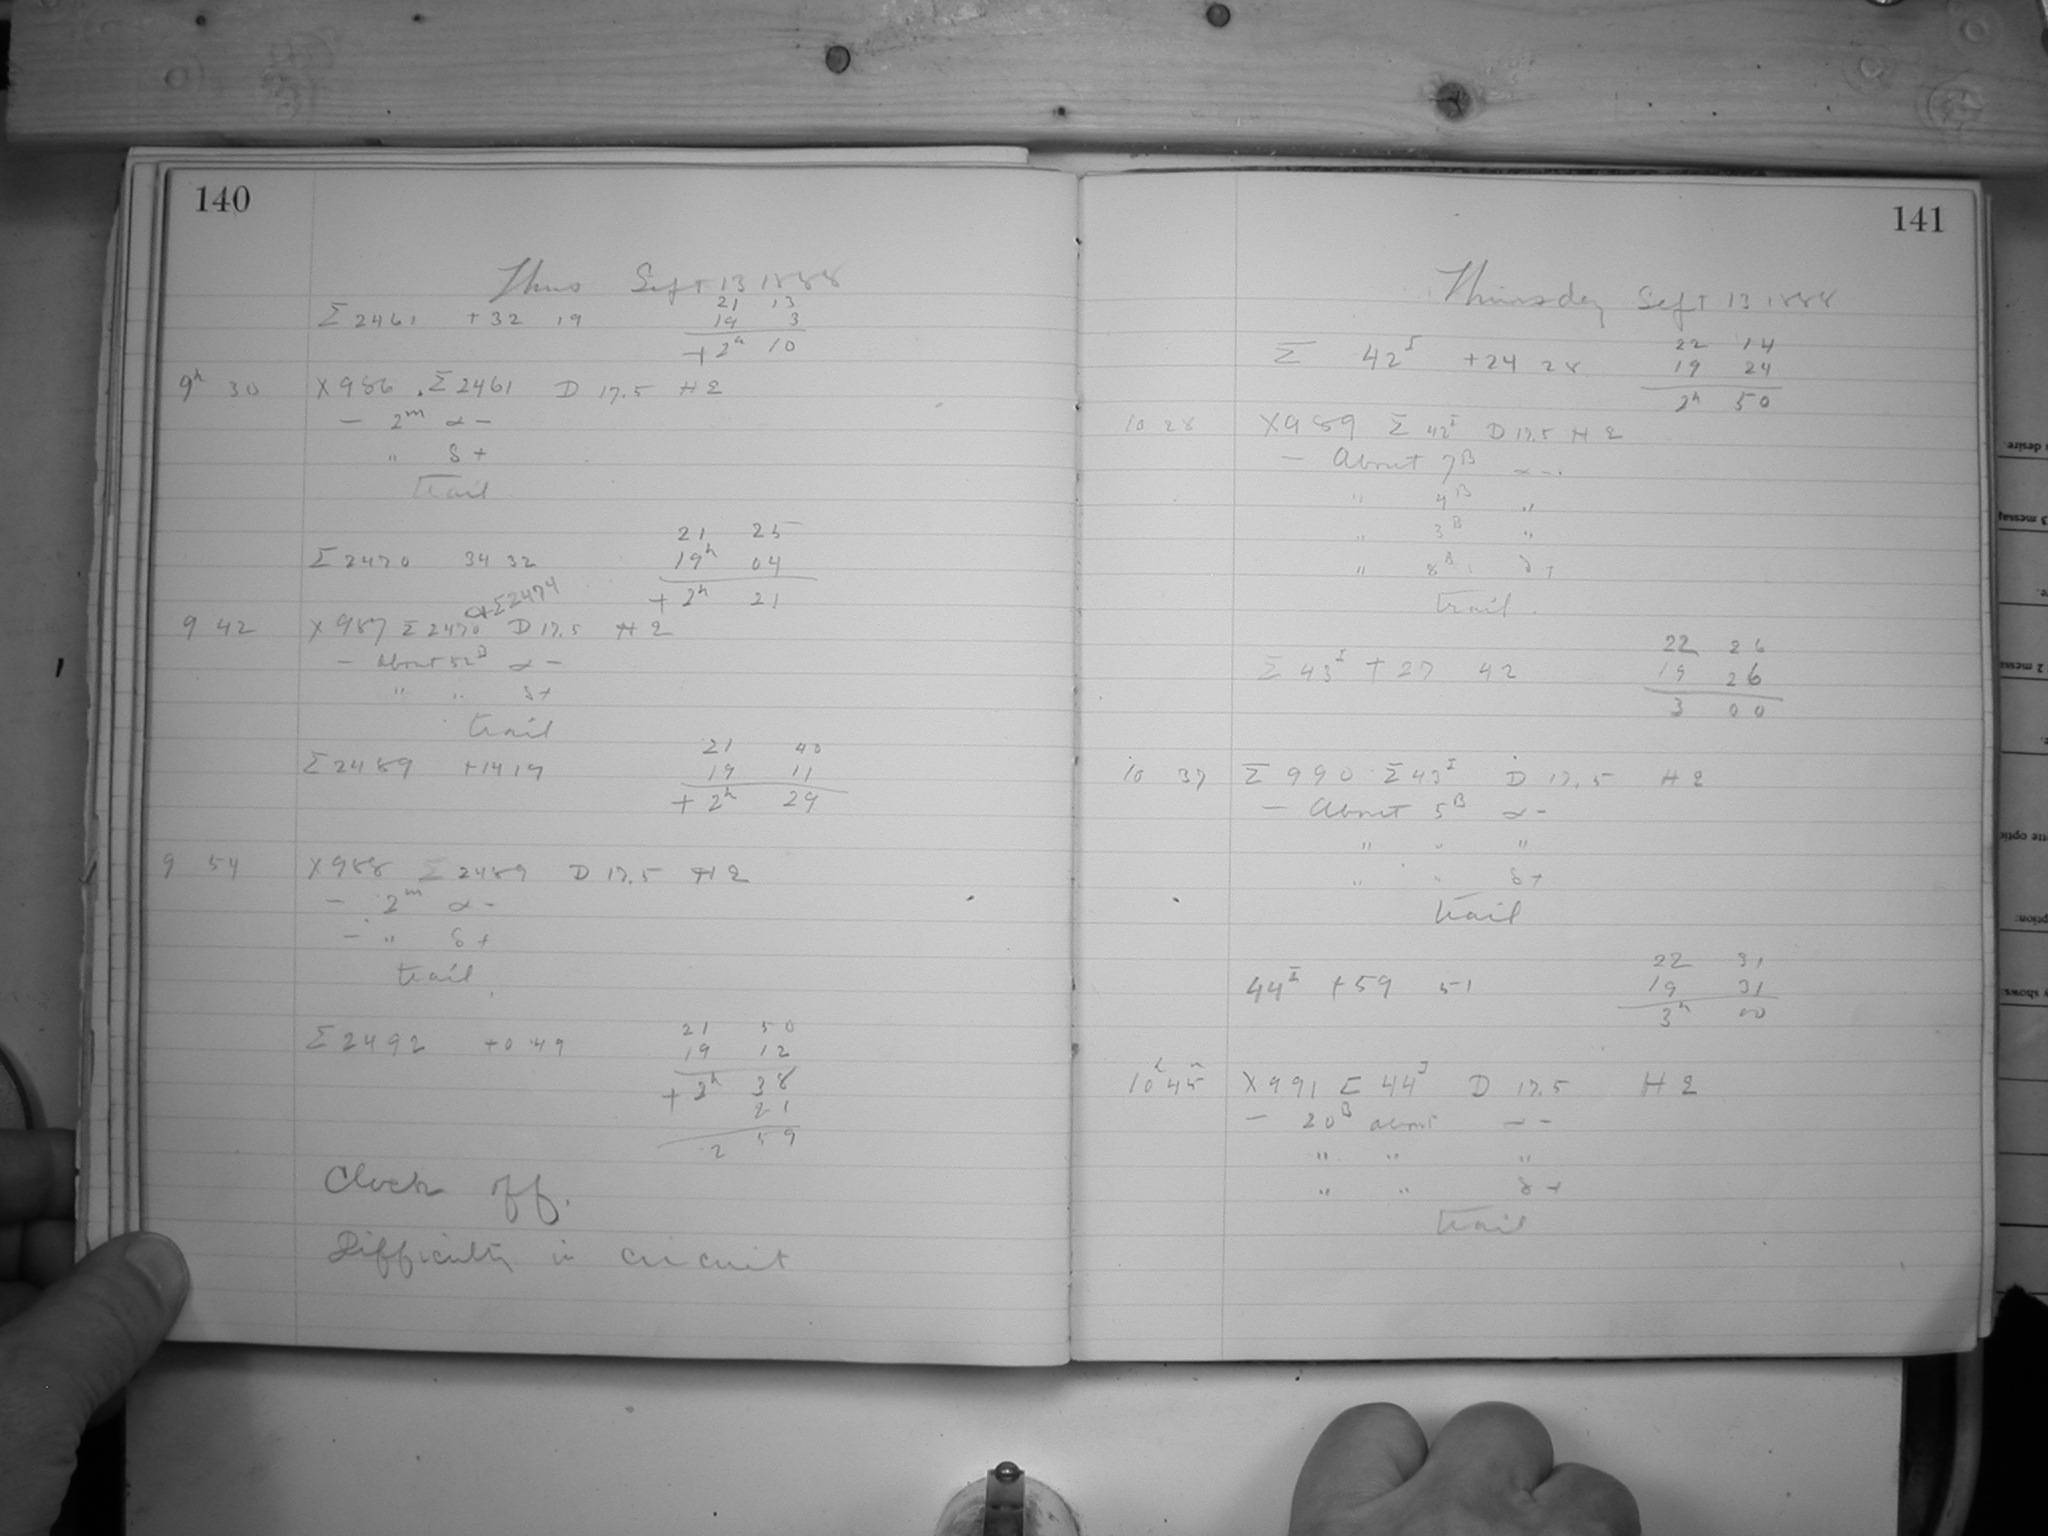 140
Thurs Sept 13 1888
Σ 2461 +32 19
21 13
19 3
+2h 10
9h 30 X 986 . Σ 2461 D 17.5 H 2
- 2m α -
" δ +
Trail
Σ 2470 34 32
21 25
19h 04
+ 2h 21
Σ2474
9 42 X 987 Σ 2470 D 17.5 H 2
- About α -
" " δ +
trail
Σ 2489 +14 19
21 40
19 11
+ 2h 29
9 54 X 988 Σ 2489 D 17.5 H 2
- 2m α -
- " δ +
trail
Σ 2492 +0 49
21 50
19 12
+ 2h 38
21
2 59
Clock off.
Difficulty in circuit
141
Thursday Sept 13 1888
Σ 42I +24 28
22 14
19 24
2h 50
10 28 X 989 Σ 42I D 17.5 H 2
- About 7B α -
" 4B "
" 3B "
" 8B δ +
trail
Σ 43I + 27 42
22 26
19 26
3 00
10 37 Σ 990 Σ 43I D 17.5 H 2
- About 5B α -
" " "
" " δ +
trail
44I +59 51
22 31
19 31
3h 00
10h 45m X 991 Σ 44I D 17.5 H 2
- 20B about α -
" " "
" " δ +
trail
desire.
3 messag
2 messa
tte optio
ption:
y shows: